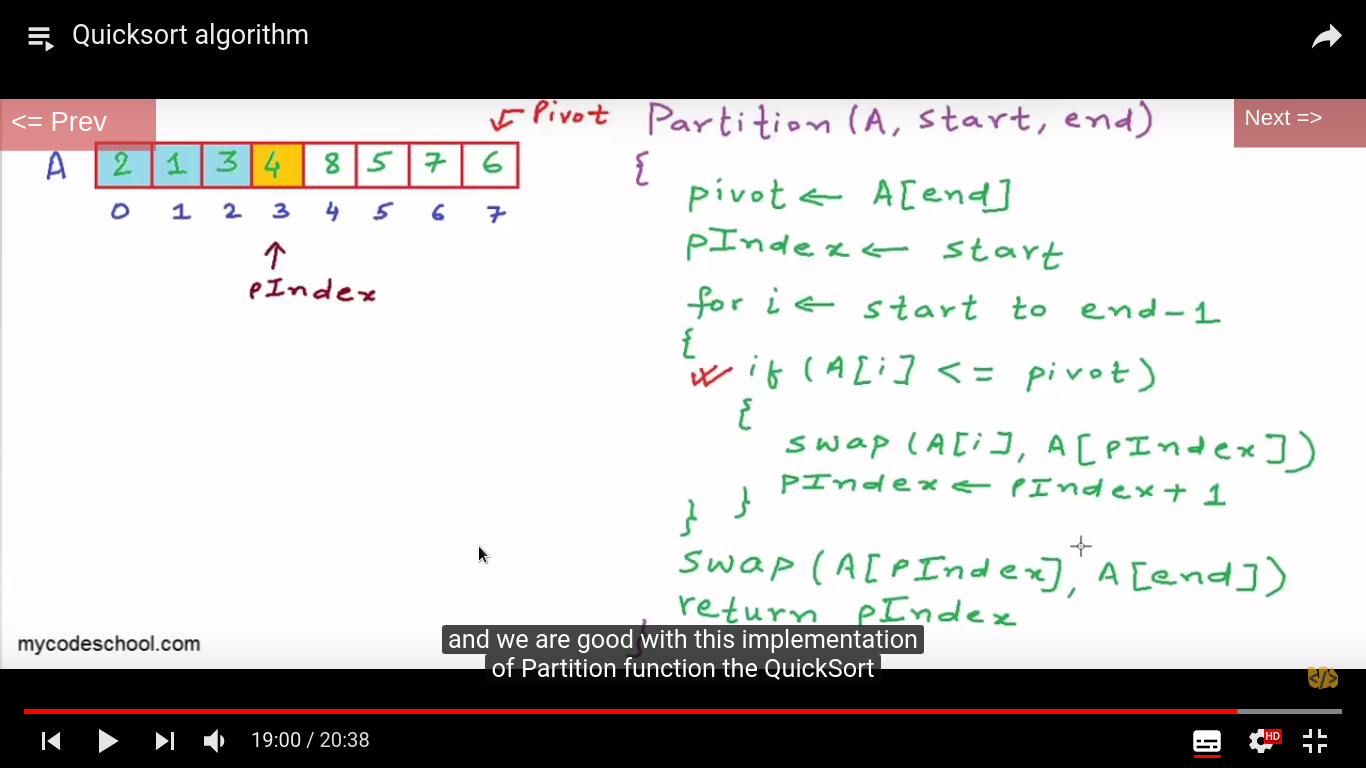 Quicksort algorithm
<= Prev
Next =>
Pivot
A
2 1 3 4 8 5 7 6
0 1 2 3 4 5 6 7
↑
pIndex
Partition (A, start, end)
{
pivot ← A[end]
pIndex ← start
for i ← start to end-1
{
if (A[i] <= pivot)
{
swap (A[i], A[pIndex])
pIndex ← pIndex + 1
}
}
swap (A[pIndex], A[end])
return pIndex
}
and we are good with this implementation
of Partition function the QuickSort
mycodeschool.com
</>
19:00 / 20:38
HD